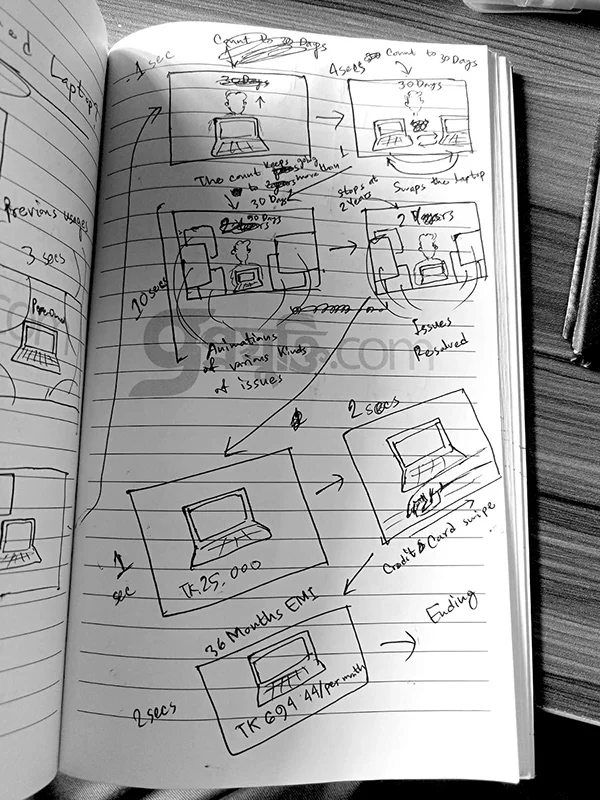 Laptop?
Previous usages
3 secs
Personal
1 sec
Count to 30 Days
30 Days
4 secs Count to 30 Days
30 Days
The count keeps going
to more than
30 Days
Swaps the laptop
Stops at
2 Years
90 Days
2 Years
2 Years
10 secs
Animations
of various kinds
of issues
Issues
Resolved
.com
1
sec
TK.25,000
2 secs
Credit Card swipe
36 Months EMI
2 secs
TK 694.44/per month
Ending